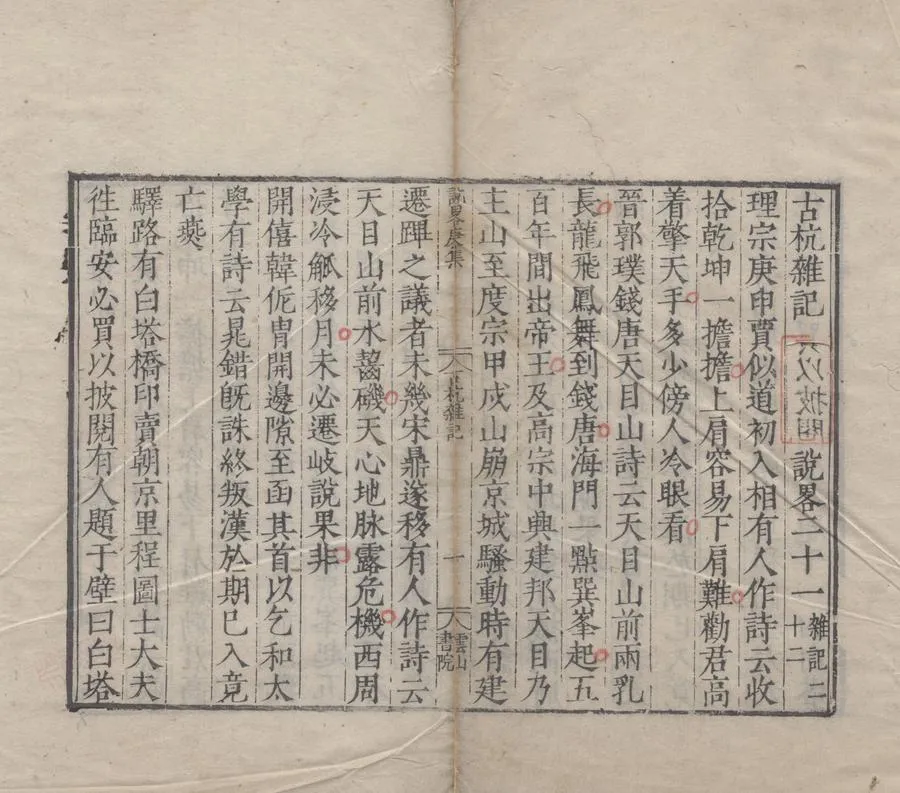 古杭雜記
說畧二十一
雜記二
十二
理宗庚申賈似道初入相有人作詩云收
拾乾坤一擔擔上肩容易下肩難勸君高
着擎天手多少傍人冷眼看
晉郭璞錢唐天目山詩云天目山前兩乳
長龍飛鳳舞到錢唐海門一點巽峯起五
百年間出帝王及高宗中興建邦天目乃
主山至度宗甲戍山崩京城騷動時有建
說畧庚集
古杭雜記
一
雲山
書院
遷蹕之議者未幾宋鼎遂移有人作詩云
天目山前水齧磯天心地脉露危機西周
浸冷觚移月未必遷岐說果非
開僖韓侂胄開邊隙至函其首以乞和太
學有詩云晁錯旣誅終叛漢於期已入竟
亡燕
驛路有白塔橋印賣朝京里程圖士大夫
徃臨安必買以披閱有人題于壁曰白塔